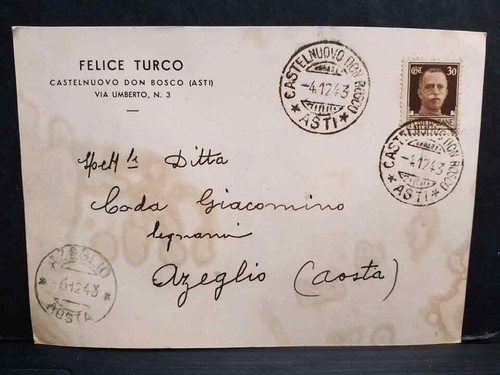 FELICE TURCO
CASTELNUOVO DON BOSCO (ASTI)
VIA UMBERTO, N. 3
CASTELNUOVO DON BOSCO
-4.12.43
* ASTI *
Cent. 30
CASTELNUOVO DON BOSCO
-4.12.43
* ASTI *
Spett le Ditta
Coda Giacomino
legnami
Azeglio (Aosta)
AZEGLIO
6.12.43
* AOSTA *